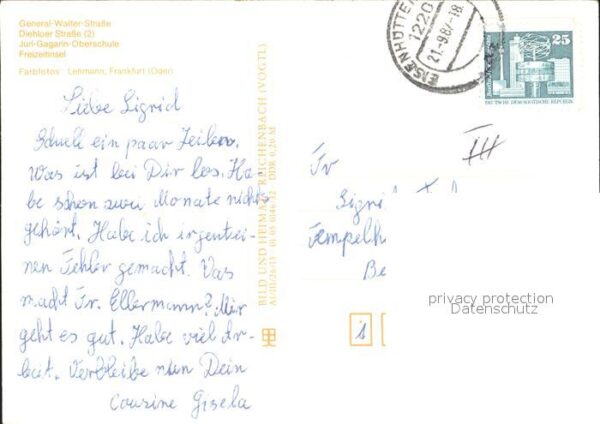 General-Walter-Straße
Diehloer Straße (2)
Juri-Gagarin-Oberschule
Freizeitinsel
Farbfotos: Lehmann, Frankfurt (Oder)
Liebe Sigrid
Schnell ein paar Zeilen.
Was ist bei Dir los. Ha-
be schon zwei Monate nichts
gehört. Habe ich irgentei-
nen Fehler gemacht. Was
macht Fr. Ellermann? Mir
geht es gut. Habe viel Ar-
beit. Verbleibe nun Dein
Cousine Gisela
BILD UND HEIMAT REICHENBACH (VOGTL)
A1/III/26/13 01 05 0146/12 DDR 0,20 M
EISENHÜTTEN
1220
21.-9.87-18
25
DEUTSCHE DEMOKRATISCHE REPUBLIK
III
Fr
Sigrid
Tempelh
Be
privacy protection
Datenschutz